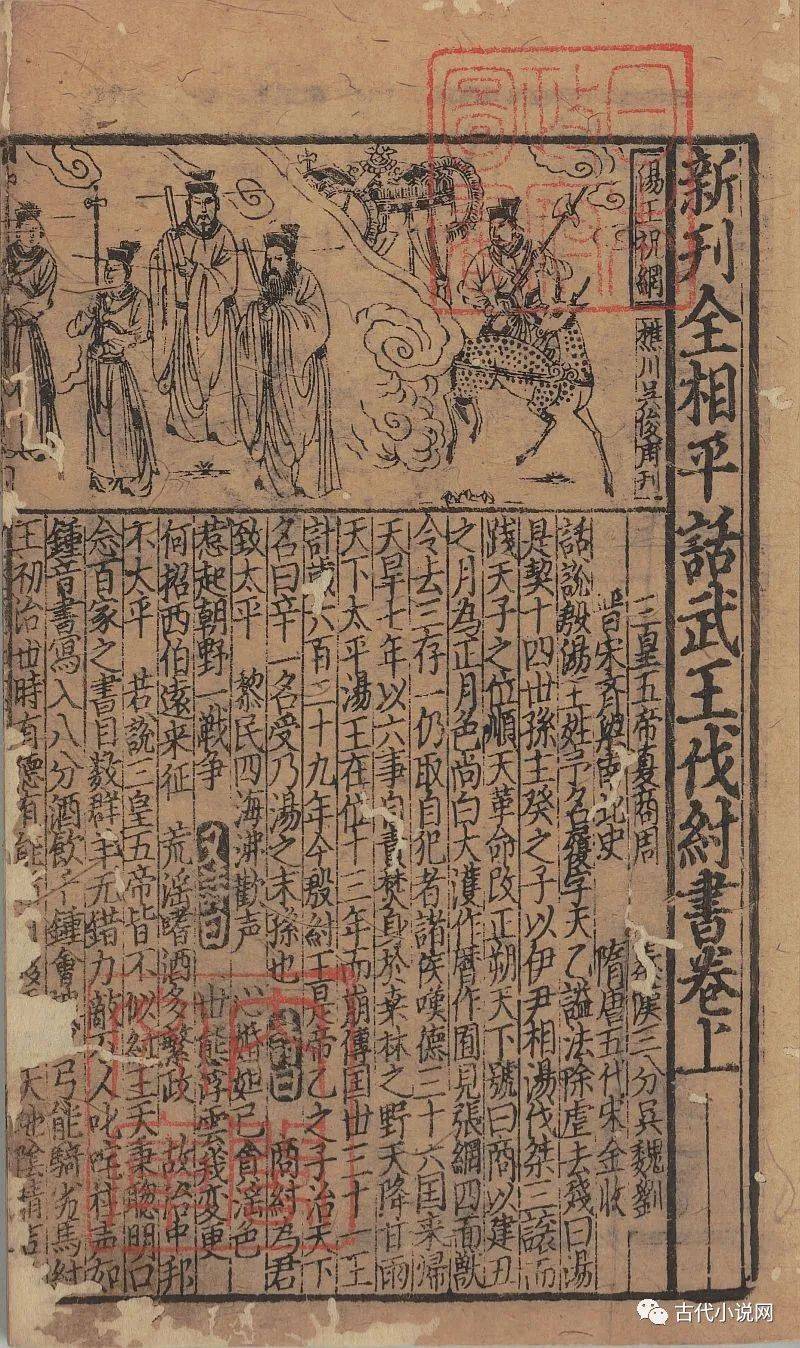 新刊全相平話武王伐紂書卷上
湯王祝網
樵川吳俊甫刊
三皇五帝夏商周　漢三分吳魏劉
晉宋齊梁南北史　隋唐五代宋金收
話說殷湯王姓子名履字天乙謚法除虐去殘曰湯
是契十四世孫主癸之子以伊尹相湯伐桀三讓而
踐天子之位順天革命改正朔天下號曰商以建丑
之月為正月色尚白大濩作曆作囯見張網四面獸
令去三存一仍取自犯者諸侯嘆德三十六囯来歸
天旱七年以六事自責焚身於桒林之野天降甘雨
天下太平湯王在位十三年而崩傳囯丗三十一王
計歲六百二十九年今殷紂王是帝乙之子治天下
名曰辛一名受乃湯之末孫也　詩曰　商紂為君
致太平　黎民四海沸歡声　心婚妲己貪淫色
惹起朝野一戦争　又詩曰　世態浮雲幾變更
何招西伯遠来征　荒淫嗜酒多繁政　故治中邦
不太平　若說三皇五帝皆不似紂王天秉聦明口
念百家之書目数群羊无錯力敵万人叱咤柱声如
鍾音書寫入八分酒飲千鍾會弓能騎劣馬紂
王初治丗時有德有能天地隂晴
古代小说网